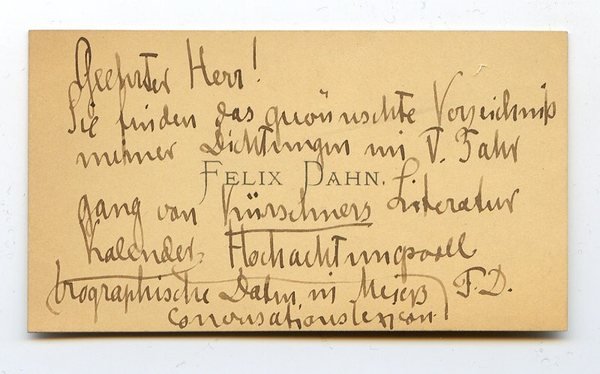 Geehrter Herr!
Sie finden das gewünschte Verzeichniß
meiner Dichtungen im V. Jahr
FELIX DAHN.
gang von Kürschners Literatur
Kalender, Hochachtungsvoll
biographische Daten in Meyers F. D.
Conversationslexicon